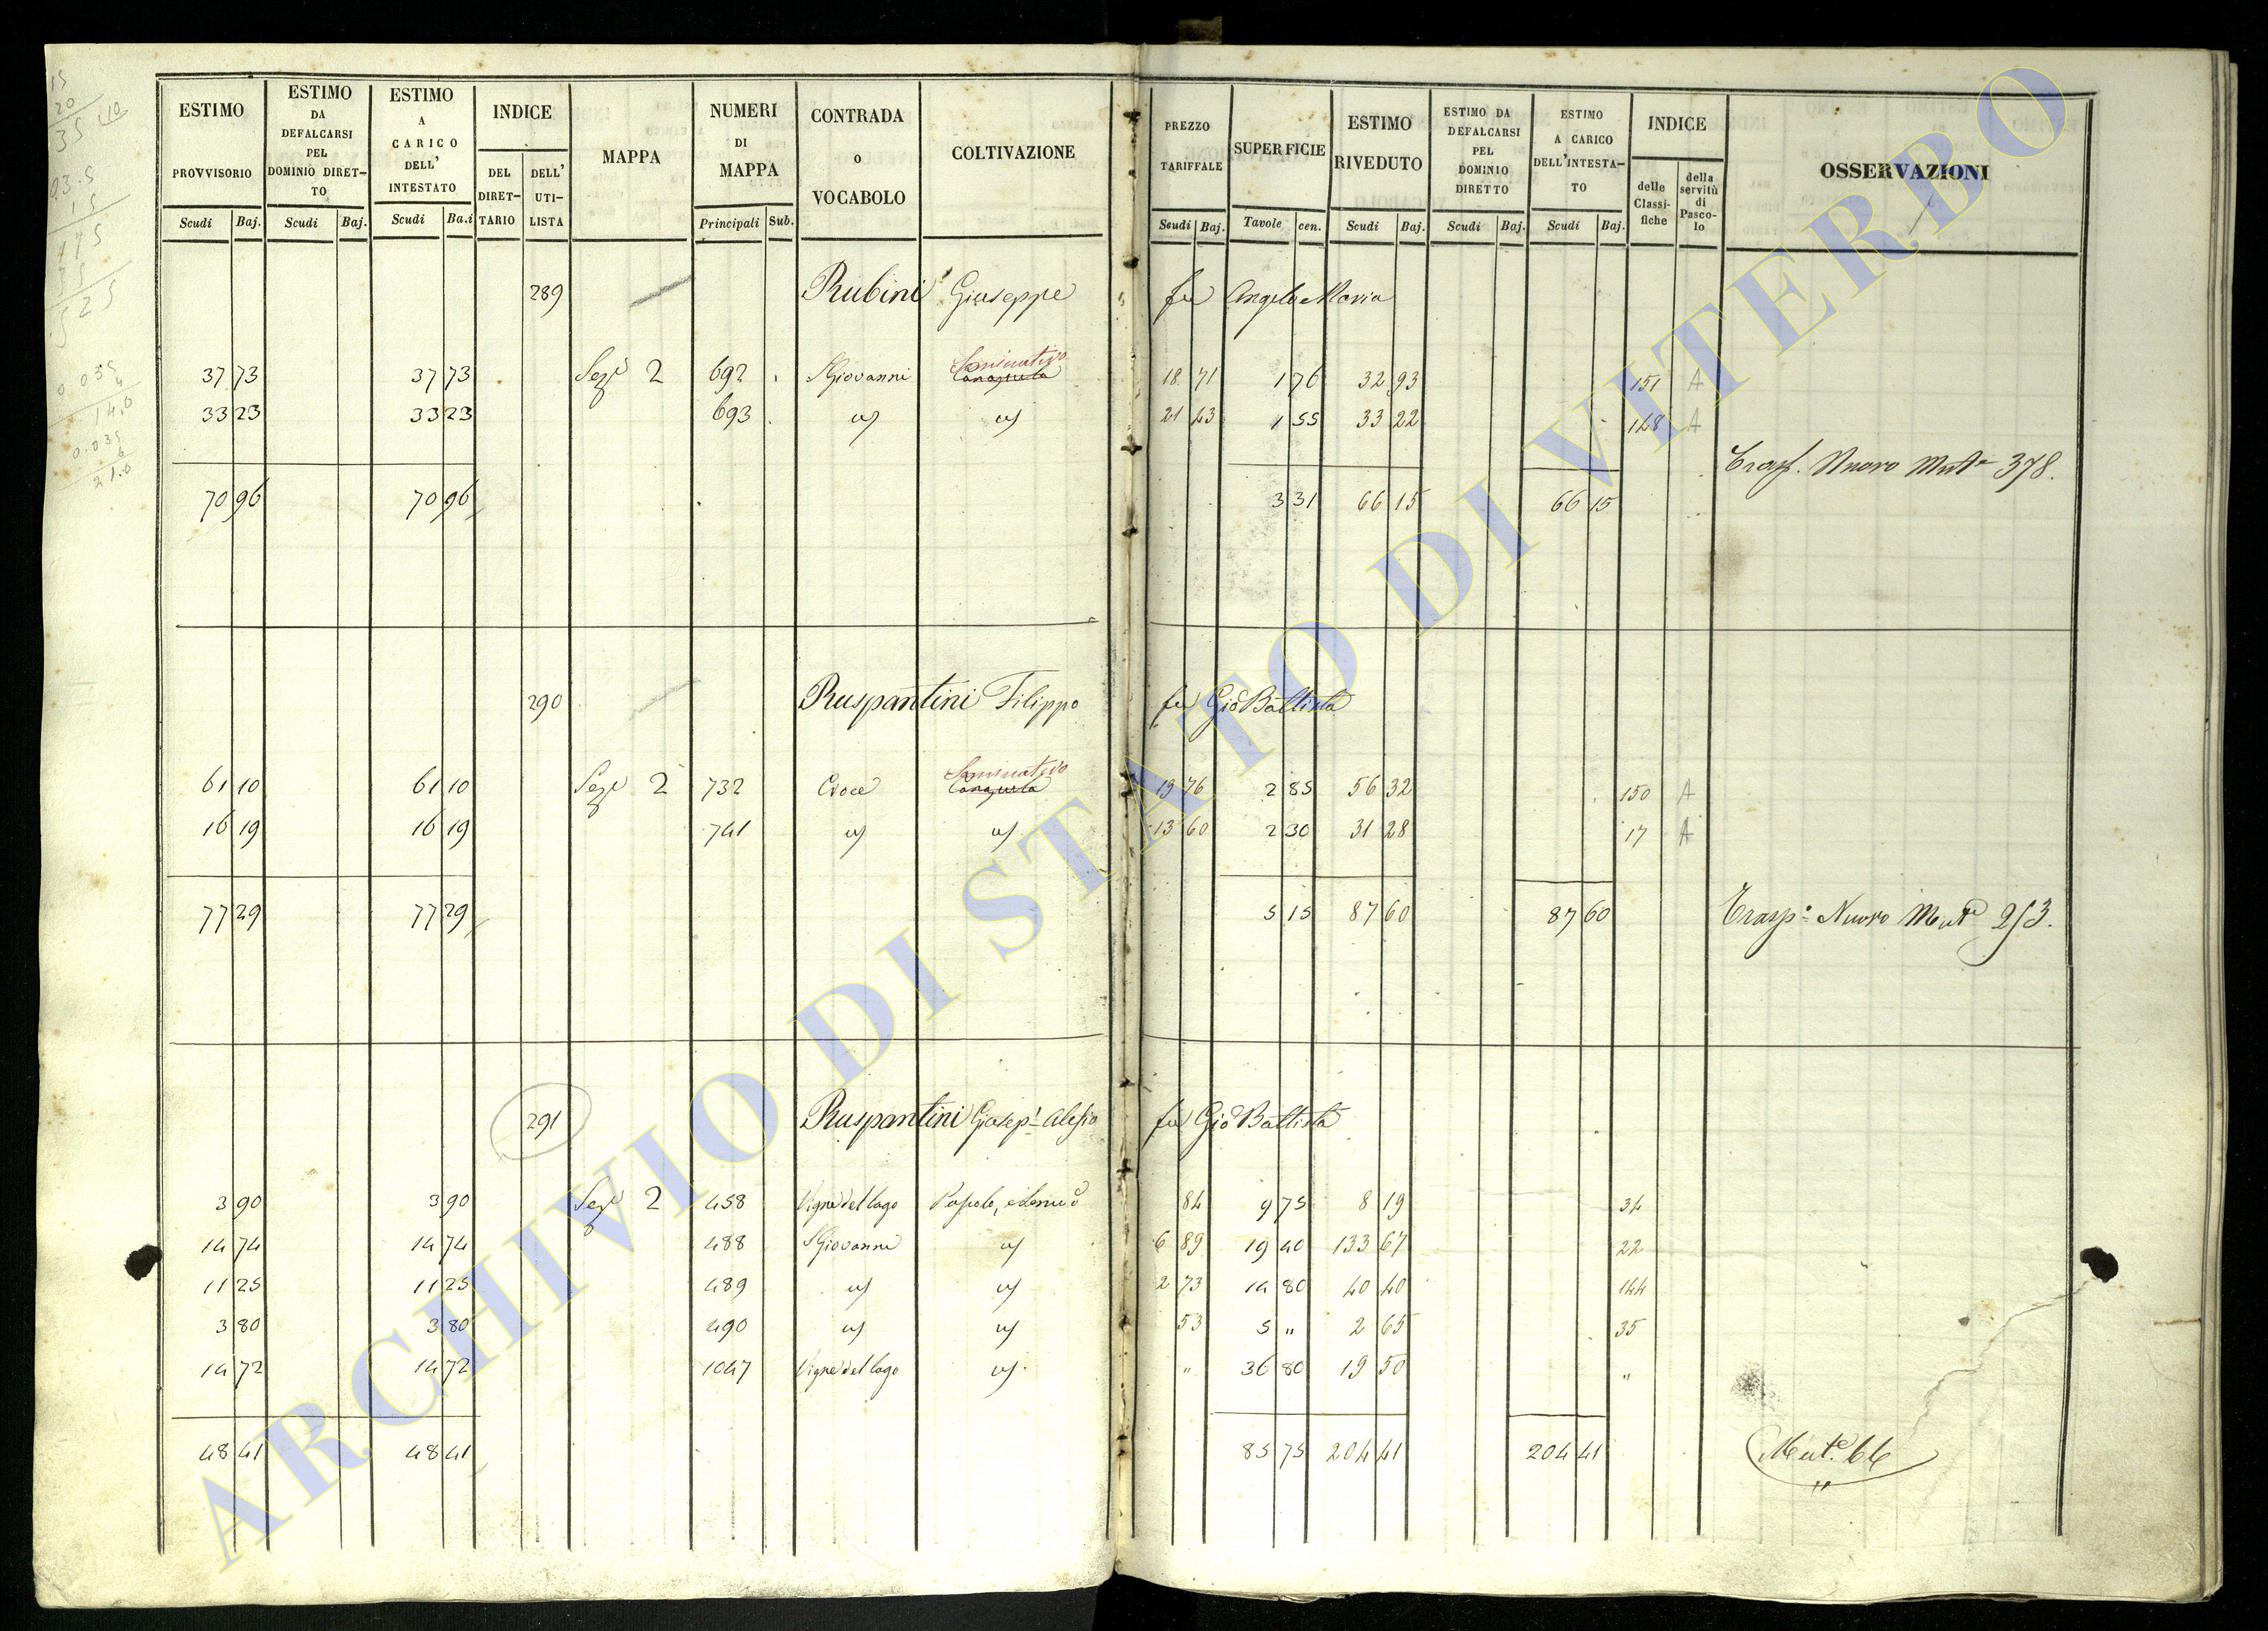 ESTIMO PROVVISORIO Scudi Baj.
ESTIMO DA DEFALCARSI PEL DOMINIO DIRETTO Scudi Baj.
ESTIMO A CARICO DELL' INTESTATO Scudi Ba.i
INDICE DEL DIRETTARIO DELL' UTILISTA
MAPPA
NUMERI DI MAPPA Principali Sub.
CONTRADA O VOCABOLO
COLTIVAZIONE
PREZZO TARIFFALE Scudi Baj.
SUPERFICIE Tavole cen.
ESTIMO RIVEDUTO Scudi Baj.
ESTIMO DA DEFALCARSI PEL DOMINIO DIRETTO Scudi Baj.
ESTIMO A CARICO DELL'INTESTATO Scudi Baj.
INDICE delle Classifiche della servitù di Pascolo
OSSERVAZIONI
289 Rubini Giuseppe fu Angelo Maria
Seminativo
37 73 37 73 Sez.e 2 692 S Giovanni 18 71 1 76 32 93 151 A
33 23 33 23 693 " " 21 43 1 55 33 22 148 A
Trasp. Nuovo Mut.e 378.
70 96 70 96 3 31 66 15 66 15
290 Ruspantini Filippo fu Gio Battista
Seminativo
61 10 61 10 Sez.e 2 732 Croce 19 76 2 85 56 32 150 A
16 19 16 19 741 " " 13 60 2 30 31 28 17 A
77 29 77 29 5 15 87 60 87 60 Trasp.o Nuovo Mut.e 253.
291 Ruspantini Giusep.e Alesio fu Gio Battista
3 90 3 90 Sez.e 2 458 Vigne del Lago 84 9 75 8 19 34
14 74 14 74 488 S Giovanni " 6 89 19 40 133 67 22
11 25 11 25 489 " " 2 73 14 80 40 40 144
3 80 3 80 490 " " 53 5 " 2 65 35
14 72 14 72 1047 Vigne del Lago " " 36 80 19 50 "
48 41 48 41 85 75 204 41 204 41 Mut.e 66
ARCHIVIO DI STATO DI VITERBO